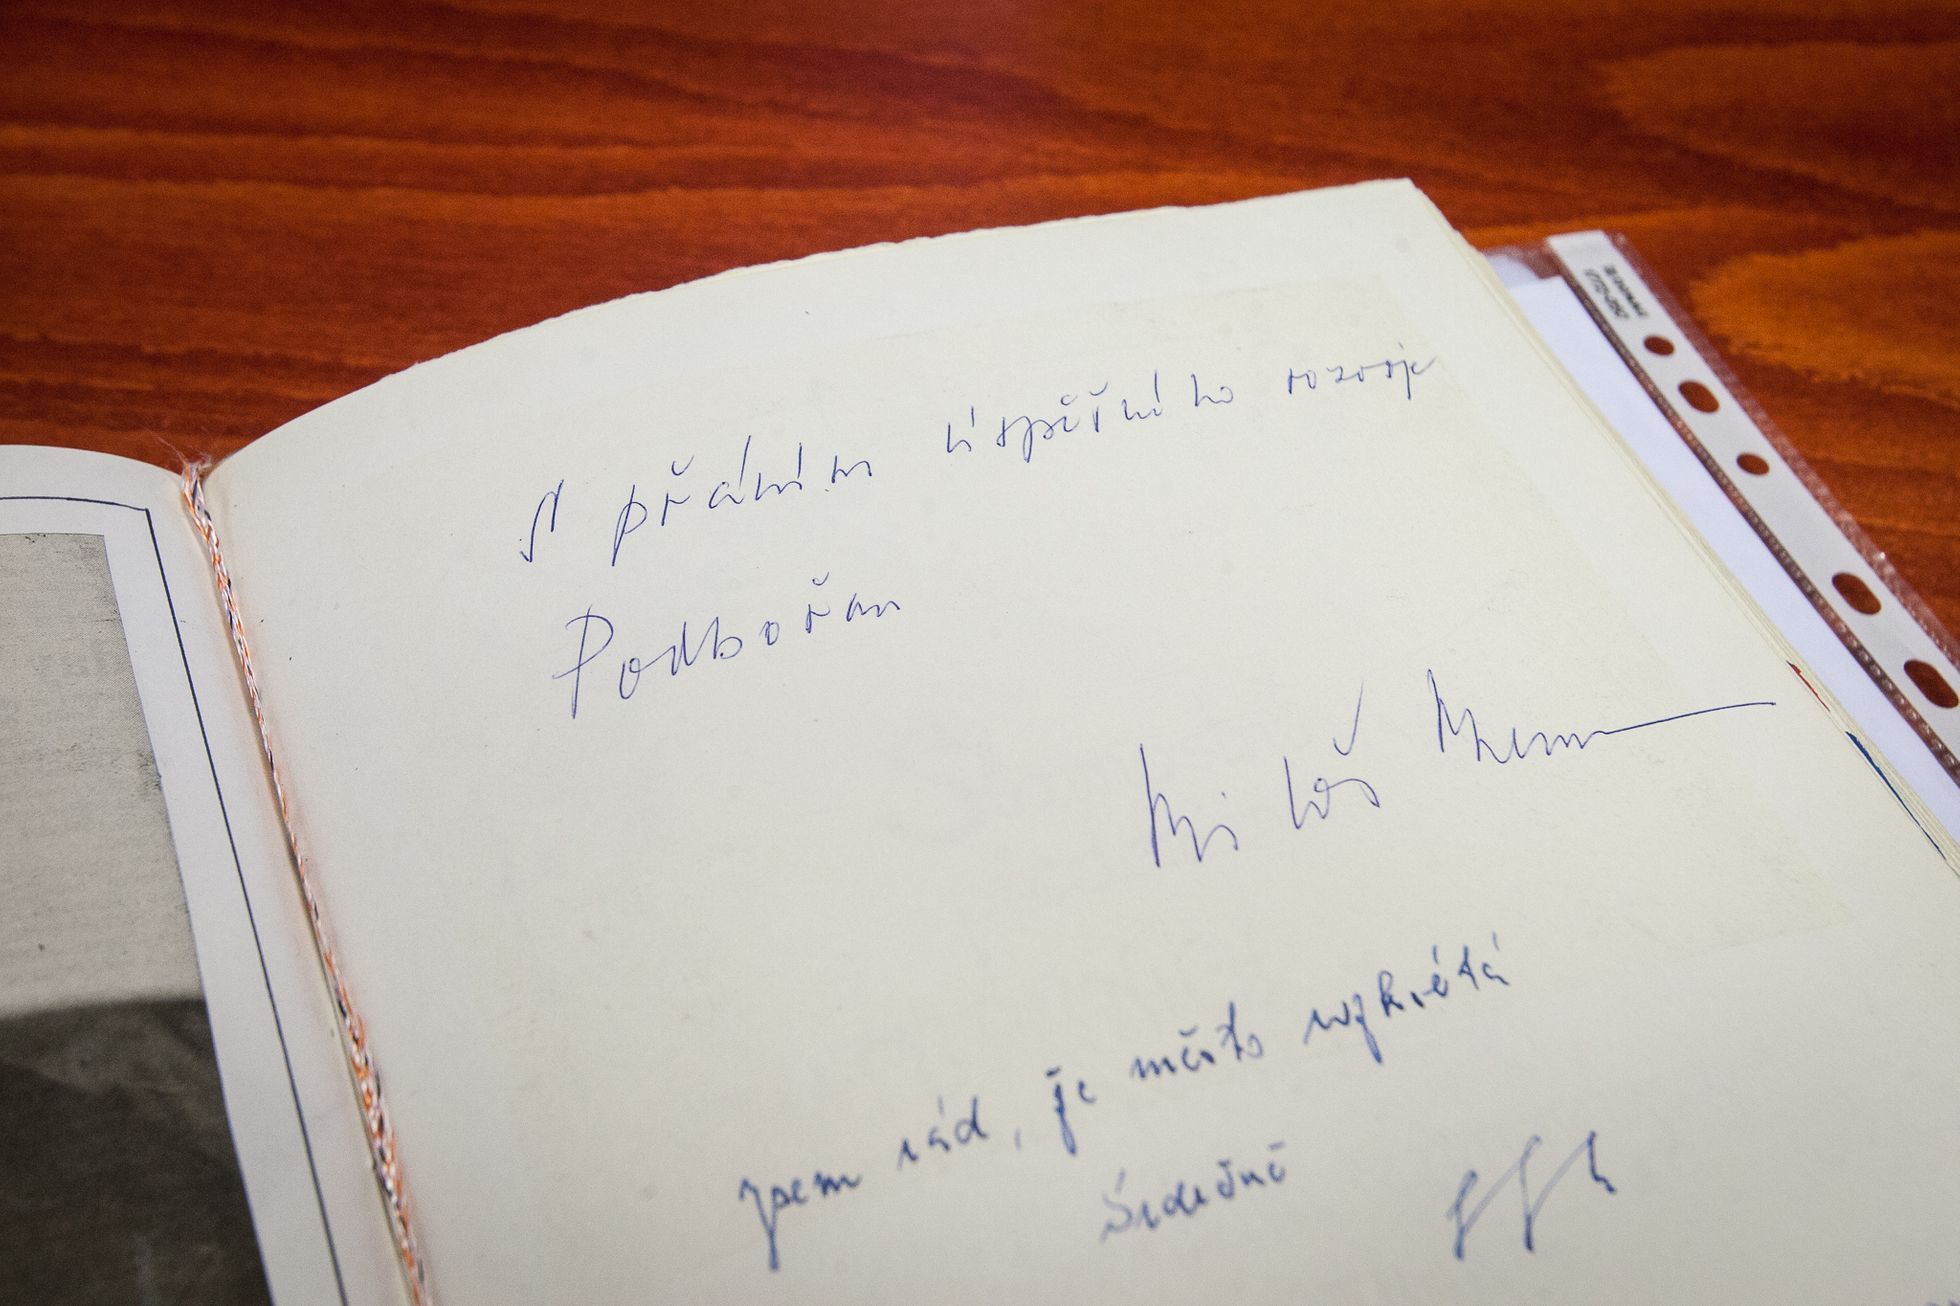 S přáním úspěšného rozvoje
Podbořan
Miloš Zeman
Jsem rád, že město vzkvétá
Srdečně